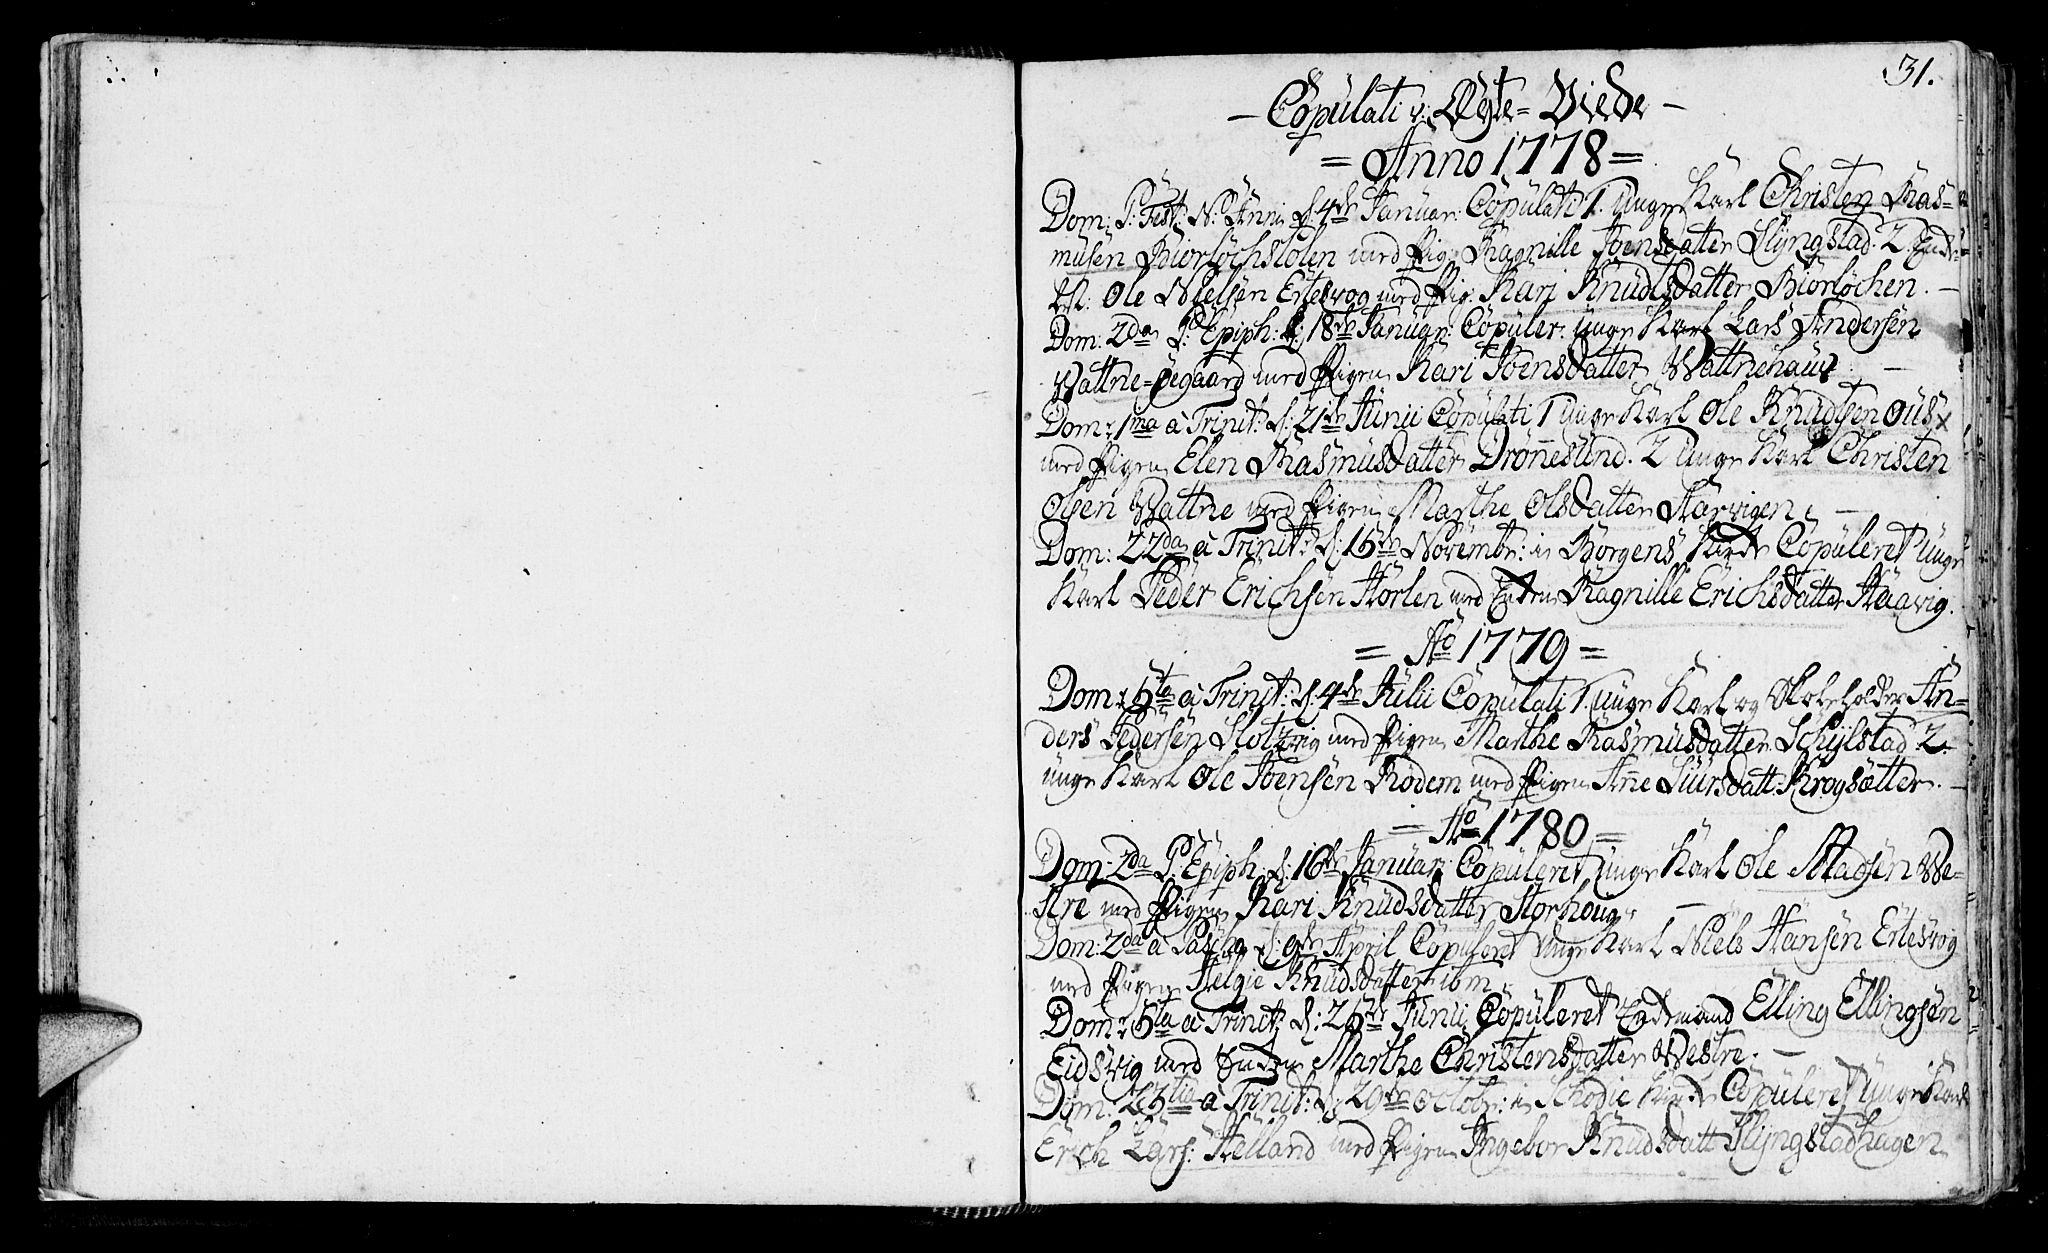 31.
- Copulati v: Ægte-Viede -
= Anno 1778 =
Dom: P: Fest: N: Anni d: 4de Januar: Copulati 1. unge Karl Christen Ras-
musen Biorlochstolen med Pig: Ragnille Joensdatter Slyngstad. 2. Enke-
Ole Nielsen Ertesvog med Pig: Kari Knudtsdatter Biorlochen. -
Dom: 2da P: Epiph: d: 18de Januar: Copuler: unge Karl Lars Andersen
Wattne-øegaard med Pigen Kari Joensdatter Wattnehaug -
Dom: 1ma à Trinit: d: 21de Junii Copulati 1 unge Karl Ole Knudtsen Ous
med Pigen Elen Rasmusdatter Dronnesund. 2 unge Karl Christen
Olsen Wattne med Pigen Marthe Olsdatter Harvigen. -
Dom: 22da à Trinit: d: 15de Novembr: in Borgens Kirke Copuleret unge
Karl Peder Erichsen Hørlen med Enken Ragnille Erichsdatter Haavig.
= Ao 1779 =
Dom: 5ta à Trinit: d: 4de Julii Copulati 1. unge Karl og Skoleholder An-
ders Pedersen Slotzvig med Pigen Marthe Rasmusdatter Schylstad 2.
unge Karl Ole Joensen Rødem med Pigen Anne Siursdatt: Krogsætter. -
= Ao 1780 =
Dom: 2da P: Epiph: d: 16de Januar: Copuleret unge Karl Ole Madsen We-
stre med Pigen Kari Knudsdatter Storhoug. -
Dom: 2da à Pascha d: 9de April Copuleret unge Karl Niels Hansen Ertesvog
med Pigen Helgie Knudsdatter ibm.
Dom: 5ta à Trinit: d: 25de Junii Copuleret Enkemand Elling Ellingsen
Eidsvig med Enken Marthe Christensdatter Westre. -
Dom: 23tia à Trinit: d: 29de Octobr: in Schodie Kirke Copuleret unge Karl
Erich Lars: Helland med Pigen Ingebor Knudsdatt Slyngstadhagen